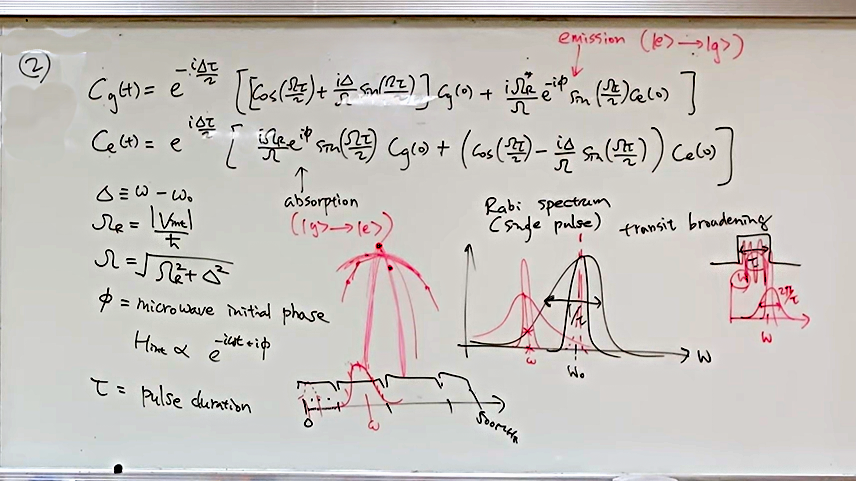 ②
emission (|e> → |g>)
Cg(t) = e^{-iΔτ/2} [[cos(Ωτ/2) + iΔ/Ω sin(Ωτ/2)] Cg(0) + iΩR*/Ω e^{-iϕ} sin(Ωτ/2) Ce(0)]
Ce(t) = e^{iΔτ/2} [iΩR/Ω e^{iϕ} sin(Ωτ/2) Cg(0) + (cos(Ωτ/2) - iΔ/Ω sin(Ωτ/2)) Ce(0)]
absorption
(|g> → |e>)
Δ ≡ ω - ω₀
ΩR = |Vint|/ħ
Ω = √(ΩR² + Δ²)
ϕ = microwave initial phase
Hint ∝ e^{-iωt + iϕ}
τ = pulse duration
Rabi spectrum
(single pulse)
transit broadening
τ
ω
ω
ω₀
W
ω
0